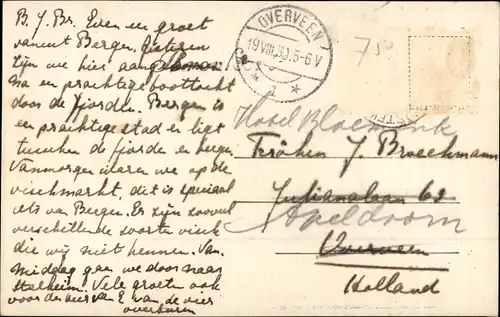 B. Y. Br. Even een groet
vanuit Bergen. Gisteren
zijn we hier aangekomen
na een prachtige boottocht
door de fjorden. Bergen is
een prachtige stad en ligt
tusschen de fjorden en bergen.
Vanmorgen waren we op de
vischmarkt, dit is speciaal
iets van Bergen. Er zijn zooveel
verschillende soorten visch
die wij niet kennen. Van
middag gaan we door naar
Stalheim. Vele groeten ook
voor de vier van E. van de vier
overburen
OVERVEEN
19 VIII 33. 5-6 V
1
750
Hotel Bloemink
Fröken J. Broeckmann
Julianalaan 63
Apeldoorn
Overveen
Holland